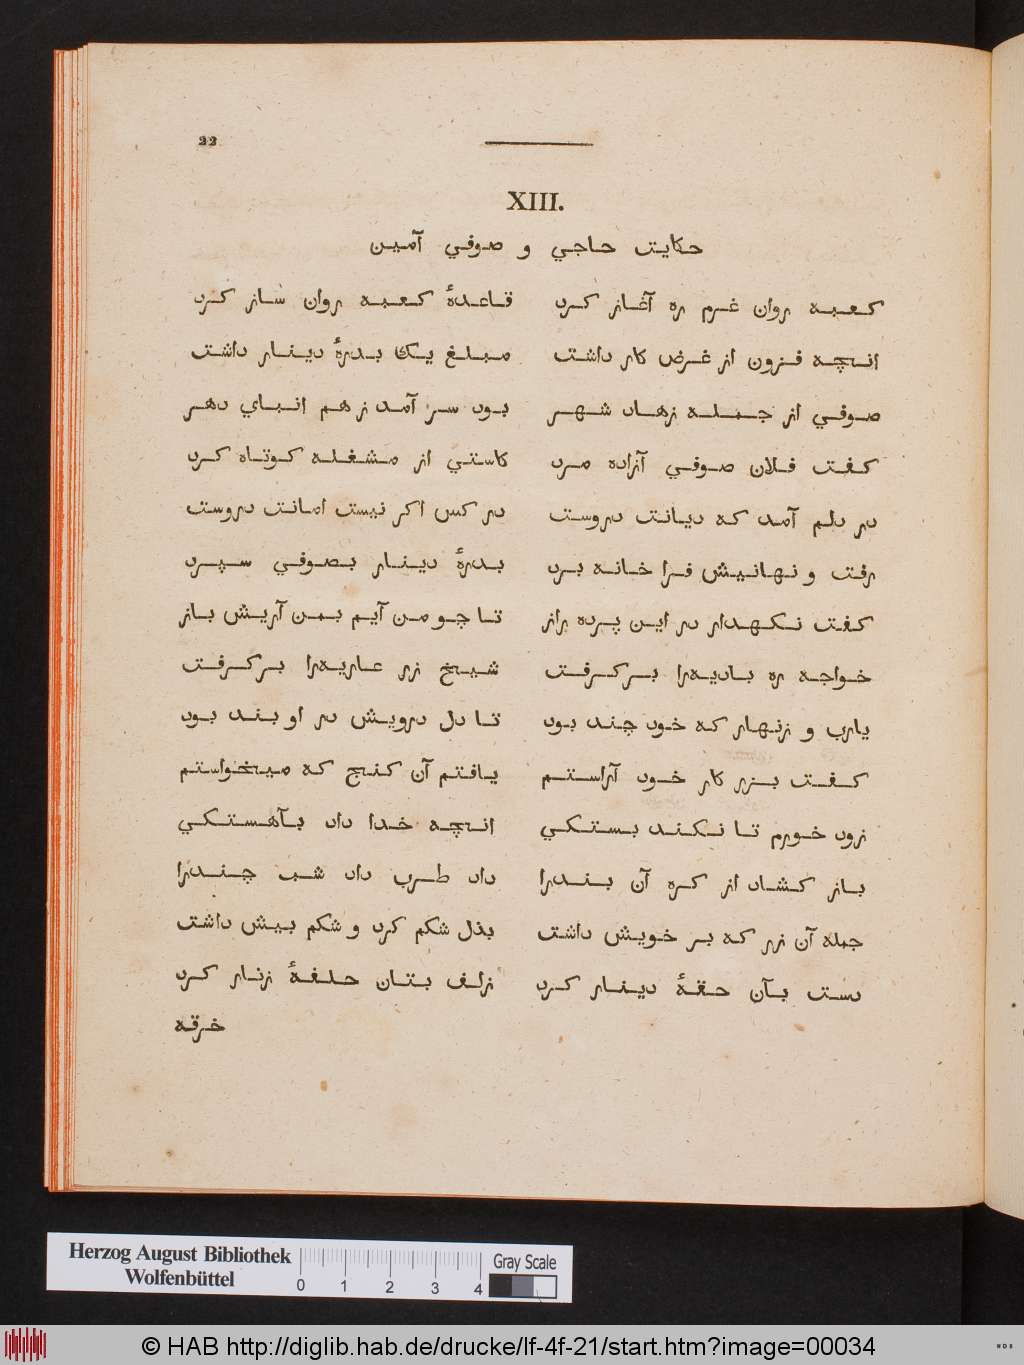 22
XIII.
حكايت حاجي و صوفي آمين
كعبه روان غرم ره آغاز كرد قاعدهٔ كعبه روان ساز كرد
انچه فزون از غرض كار داشت مبلغ يك بدرهٔ دينار داشت
صوفي از جمله زهاد شهر بود سر آمد ز هم انباي دهر
كفت فلان صوفي آزاده مرد كاستي از مشغله كوتاه كرد
در دلم آمد كه ديانت دروست در كس اكر نيست امانت دروست
رفت و نهانيش فرا خانه برد بدرهٔ دينار بصوفي سپرد
كفت نكهدار در اين پرده راز تا چو من آيم بمن آريش باز
خواجه ره باديه‌را بركرفت شيخ زر عاريه‌را بركرفت
يارب و زنهار كه خود چند بود تا دل درويش در او بند بود
كفت بزر كار خود آراستم يافتم آن كنج كه ميخواستم
زود خورم تا نكند بستكي انچه خدا داد بآهستكي
باز كشاد از كره آن بندرا داد طرب داد شب چندرا
جمله آن زر كه بر خويش داشت بذل شكم كرد و شكم بيش داشت
دست بآن حقهٔ دينار كرد زلف بتان حلفهٔ زنار كرد
خرقه
Herzog August Bibliothek
Wolfenbüttel
0 1 2 3 4
Gray Scale
© HAB http://diglib.hab.de/drucke/lf-4f-21/start.htm?image=00034